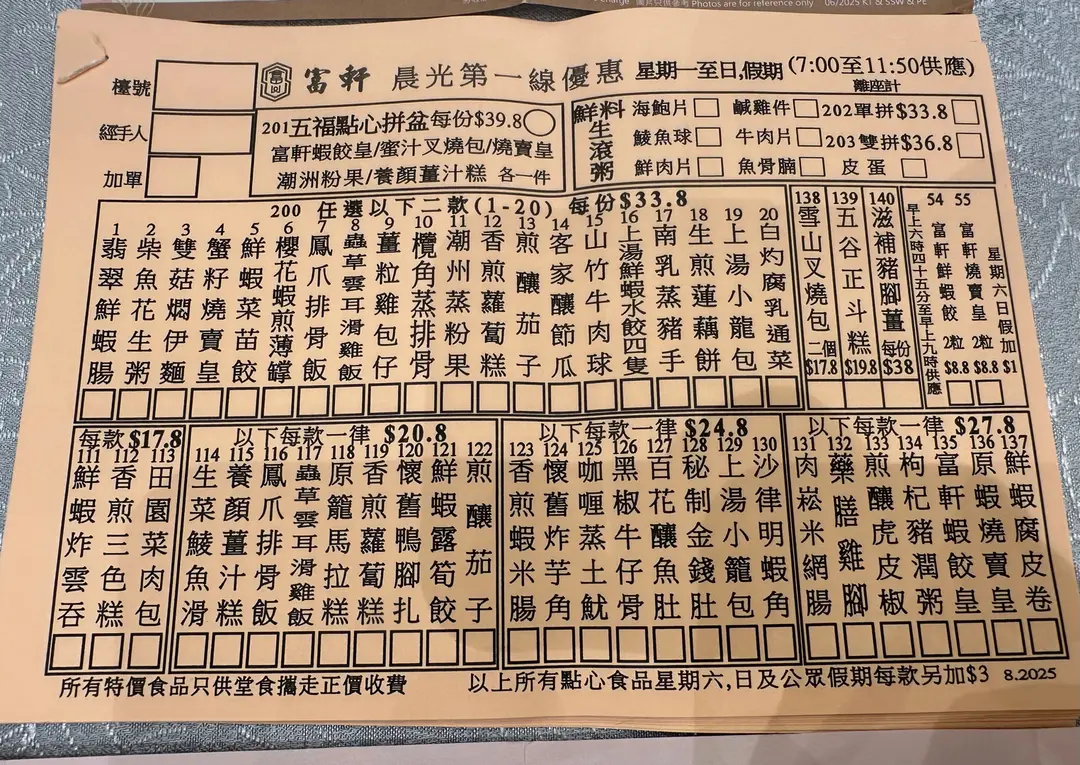 國片只供參考 Photos are for reference only 06/2025 KT & SSW & PE
檯號
經手人
加單
富軒 晨光第一線優惠 星期一至日,假期(7:00至11:50供應)
離座計
201五福點心拼盆每份$39.8
富軒蝦餃皇/蜜汁叉燒包/燒賣皇
潮洲粉果/養顏薑汁糕 各一件
鮮料生滾粥
海鮑片 鹹雞件 202單拼$33.8
鯪魚球 牛肉片 203雙拼$36.8
鮮肉片 魚骨腩 皮蛋
200 任選以下二款(1-20) 每份$33.8
1 翡翠鮮蝦腸
2 柴魚花生粥
3 雙菇燜伊麵
4 蟹籽燒賣皇
5 鮮蝦菜苗餃
6 櫻花蝦煎薄罉
7 鳳爪排骨飯
8 蟲草雲耳滑雞飯
9 薑粒雞包仔
10 欖角蒸排骨
11 潮州蒸粉果
12 香煎蘿蔔糕
13 煎釀茄子
14 客家釀節瓜
15 山竹牛肉球
16 上湯鮮蝦水餃四隻
17 南乳蒸豬手
18 生煎蓮藕餅
19 上湯小龍包
20 白灼腐乳通菜
138 雪山叉燒包 二個 $17.8
139 五谷正斗糕 $19.8
140 滋補豬腳薑 每份 $38
早上六時四十五分至早上九時供應
54 富軒鮮蝦餃 2粒 $8.8
55 富軒燒賣皇 2粒 $8.8
星期六日假加 $1
每款$17.8
111 鮮蝦炸雲吞
112 香煎三色糕
113 田園菜肉包
以下每款一律 $20.8
114 生菜鯪魚滑
115 養顏薑汁糕
116 鳳爪排骨飯
117 蟲草雲耳滑雞飯
118 原籠馬拉糕
119 香煎蘿蔔糕
120 懷舊鴨腳扎
121 鮮蝦露筍餃
122 煎釀茄子
以下每款一律 $24.8
123 香煎蝦米腸
124 懷舊炸芋角
125 咖喱蒸土魷
126 黑椒牛仔骨
127 百花釀魚肚
128 秘制金錢肚
129 上湯小籠包
130 沙律明蝦角
以下每款一律 $27.8
131 肉崧米網腸
132 藥膳雞腳
133 煎釀虎皮椒
134 枸杞豬潤粥
135 富軒蝦餃皇
136 原蝦燒賣皇
137 鮮蝦腐皮卷
所有特價食品只供堂食攜走正價收費
以上所有點心食品星期六,日及公眾假期每款另加$3 8.2025